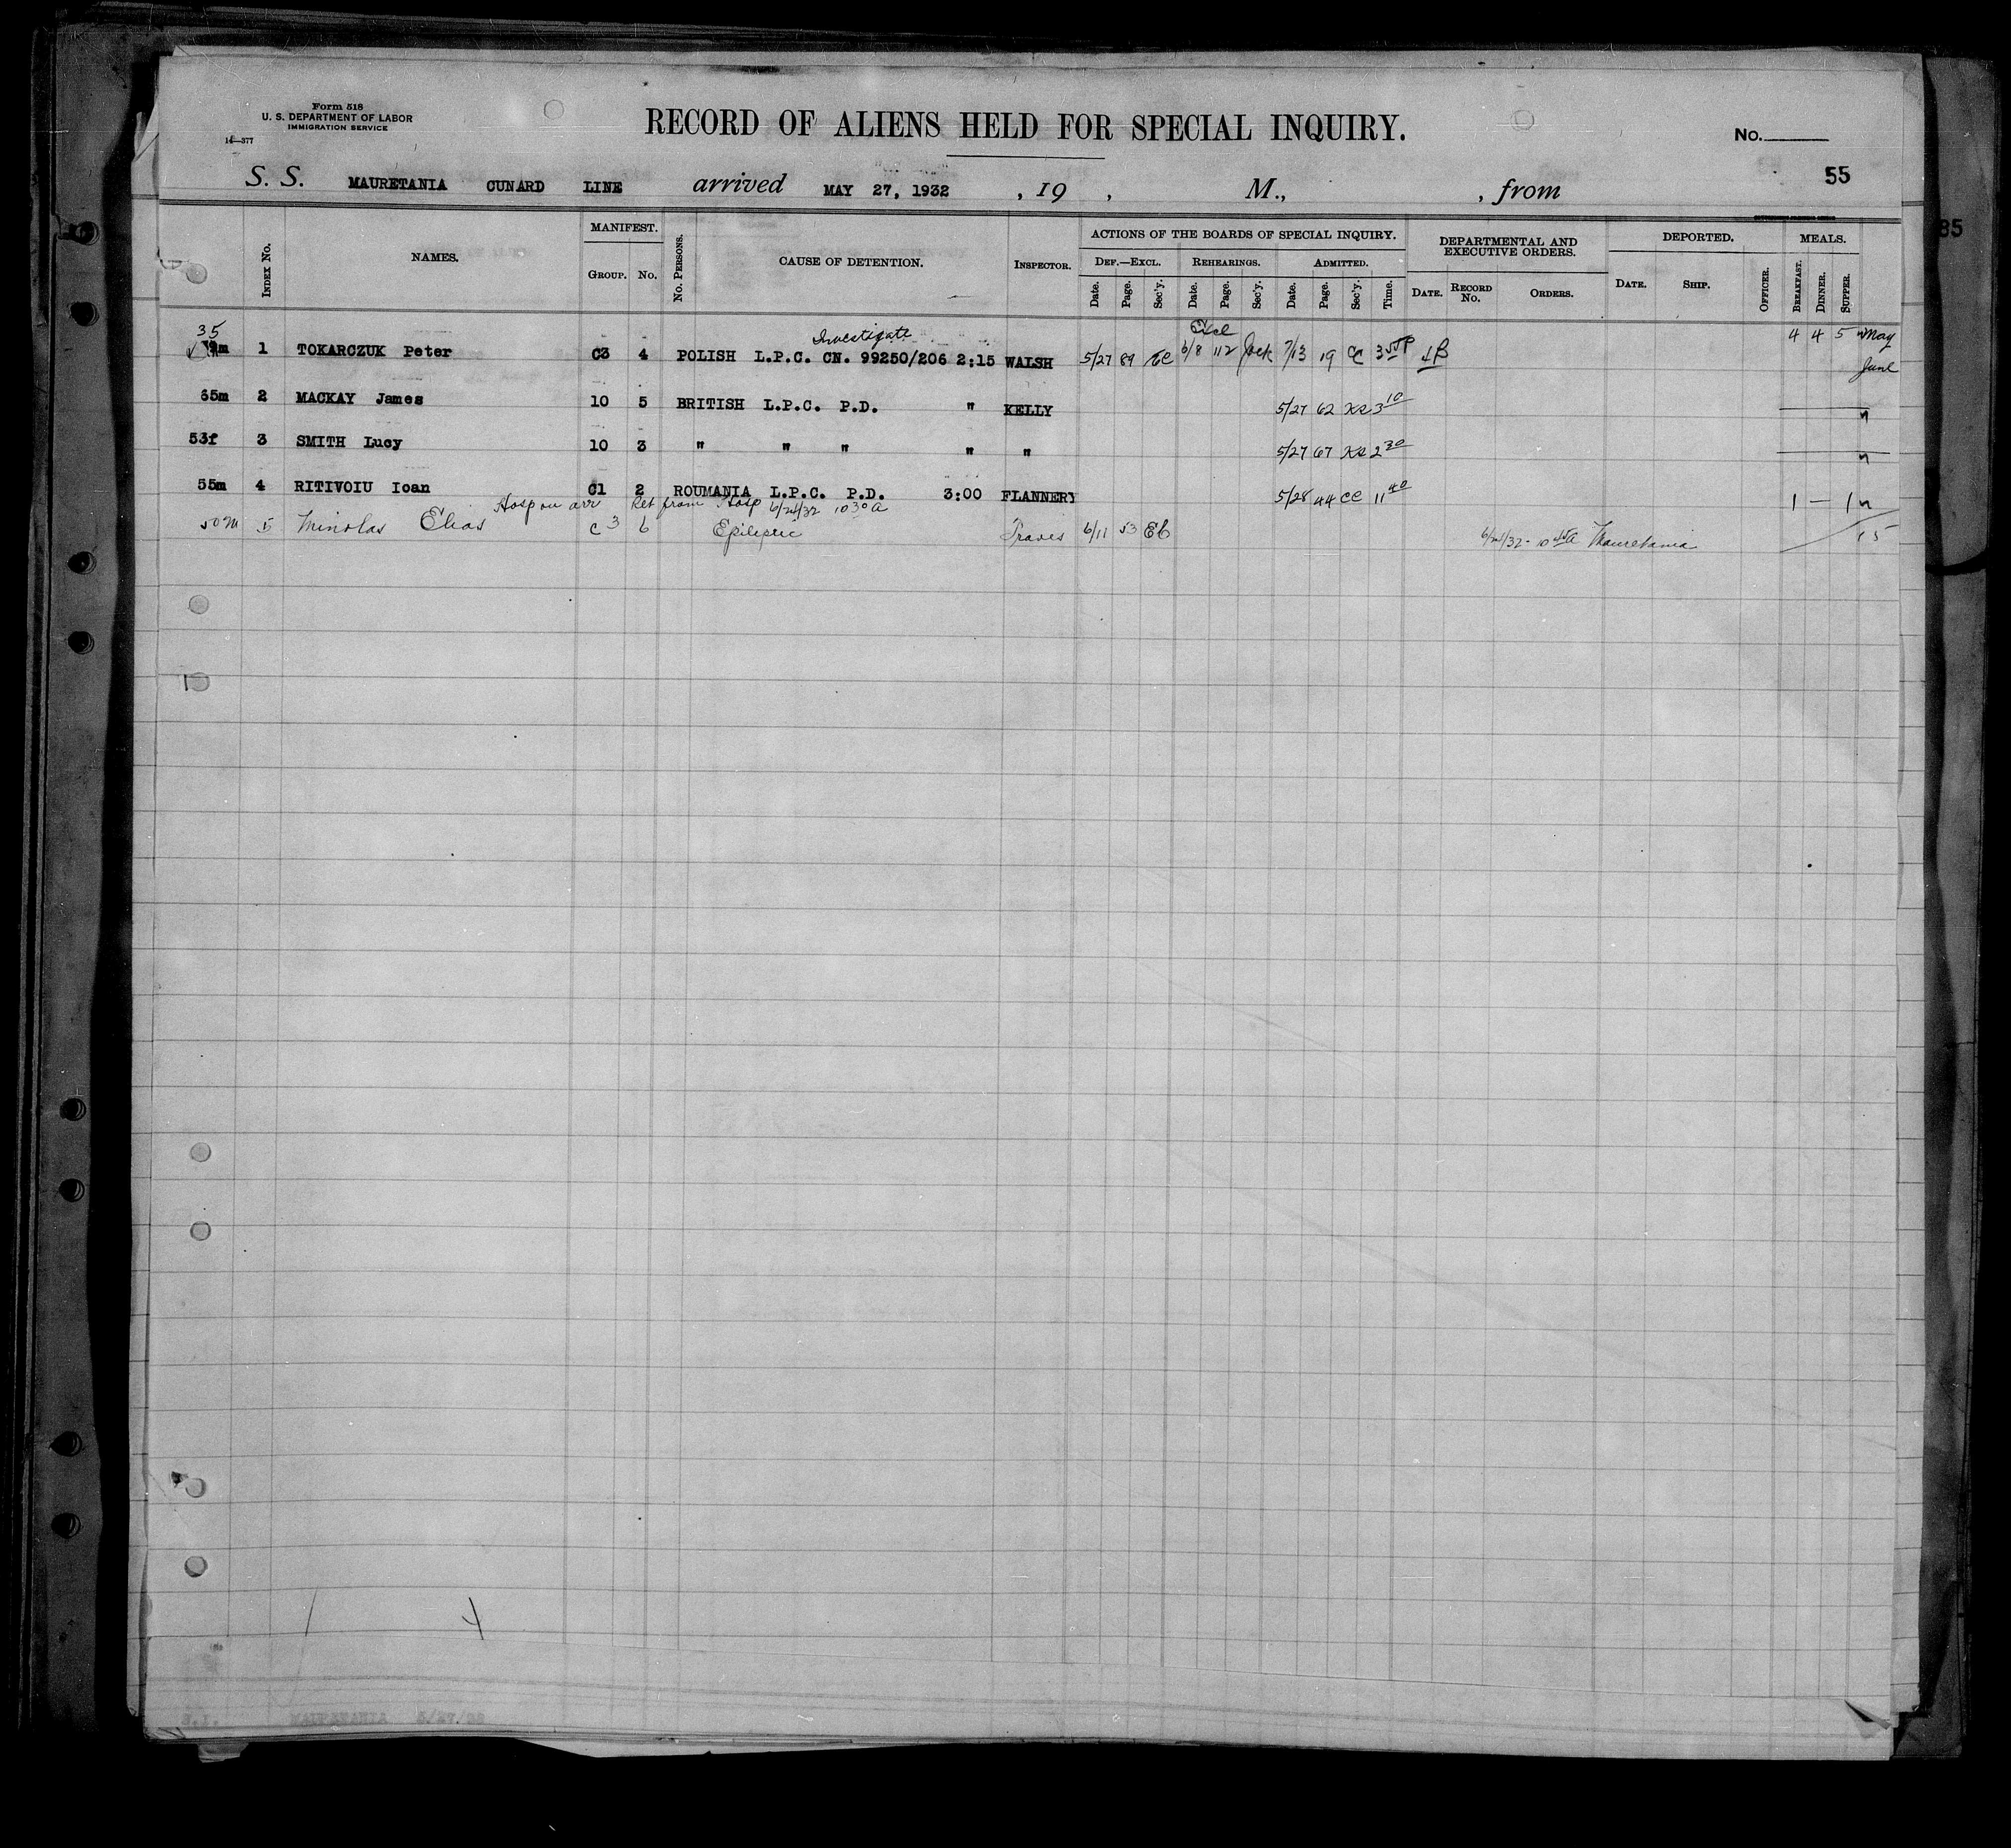 Form 518
U. S. DEPARTMENT OF LABOR
IMMIGRATION SERVICE
14—377
RECORD OF ALIENS HELD FOR SPECIAL INQUIRY.
No.
S. S. MAURETANIA CUNARD LINE arrived MAY 27, 1932 , 19 , M., , from
55
85
INDEX No. NAMES. MANIFEST. GROUP. No. No. PERSONS. CAUSE OF DETENTION. INSPECTOR. ACTIONS OF THE BOARDS OF SPECIAL INQUIRY. DEF.—EXCL. Date. Page. Sec'y. REHEARINGS. Date. Page. Sec'y. ADMITTED. Date. Page. Sec'y. Time. DEPARTMENTAL AND EXECUTIVE ORDERS. DATE. RECORD No. ORDERS. DEPORTED. DATE. SHIP. OFFICER. MEALS. BREAKFAST. DINNER. SUPPER.
35 Investigate Excl
1 TOKARCZUK Peter C3 4 POLISH L.P.C. CN. 99250/206 2:15 WALSH 5/27 89 6/8 112 7/13 19 CC 4 4 5 May
June
65m 2 MACKAY James 10 5 BRITISH L.P.C. P.D. " KELLY 5/27 62 3 10 "
53f 3 SMITH Lucy 10 3 " " " " " 5/27 67 2 30 "
55m 4 RITIVOIU Ioan C1 2 ROUMANIA L.P.C. P.D. 3:00 FLANNERY 5/28 44 CC 11 40 1 — 1 "
Hosp on arr Ret from Hosp 6/24/32 10 30 A
50m 5 Minolas Elias C3 6 Epileptic Travis 6/11 53 6/24/32 - 10 45 A Mauretania
1 4
S.I. MAURETANIA 5/27/32